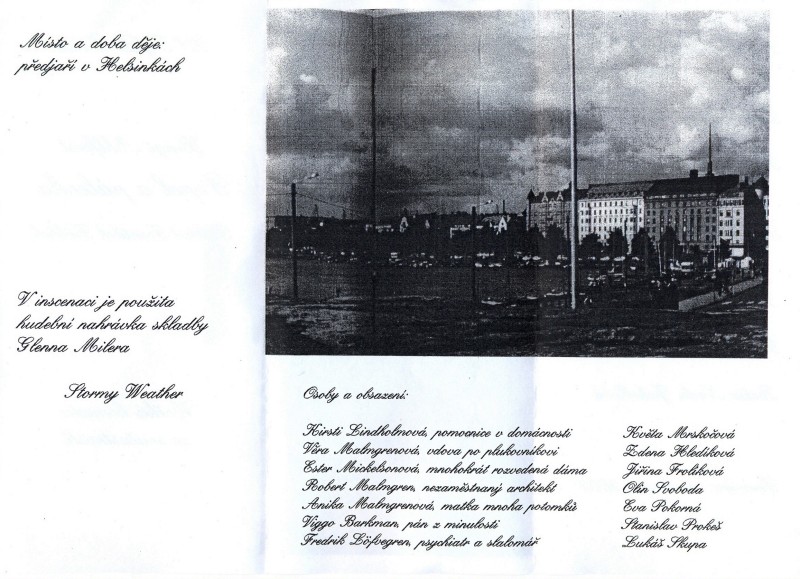 Místo a doba děje:
předjaří v Helsinkách
V inscenaci je použita
hudební nahrávka skladby
Glenna Milera
Stormy Weather
Osoby a obsazení:
Kirsti Lindholmová, pomocnice v domácnosti Květa Mrskočová
Věra Malmgrenová, vdova po plukovníkovi Zdena Hledíková
Ester Mickelsonová, mnohokrát rozvedená dáma Jiřina Frolíková
Robert Malmgren, nezaměstnaný architekt Olin Svoboda
Anika Malmgrenová, matka mnoha potomků Eva Pokorná
Viggo Barkman, pán z minulosti Stanislav Prokeš
Fredrik Löfvegren, psychiatr a slalomář Lukáš Skupa